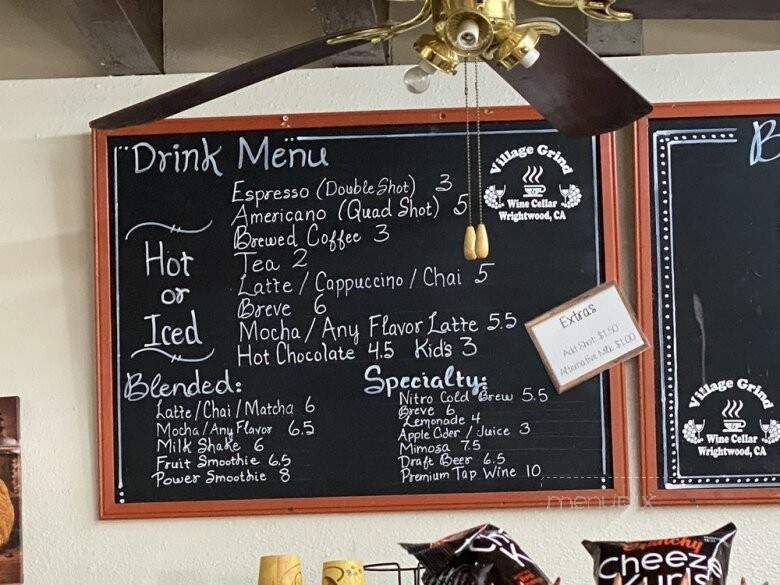 Drink Menu
Hot
or
Iced
Espresso (Double Shot) 3
Americano (Quad Shot) 5
Brewed Coffee 3
Tea 2
Latte / Cappuccino / Chai 5
Breve 6
Mocha / Any Flavor Latte 5.5
Hot Chocolate 4.5 Kids 3
Village Grind
Wine Cellar
Wrightwood, CA
Extras
Add Shot: $1.50
Alternative Milk: $1.00
Blended:
Latte / Chai / Matcha 6
Mocha / Any Flavor 6.5
Milk Shake 6
Fruit Smoothie 6.5
Power Smoothie 8
Specialty:
Nitro Cold Brew 5.5
Breve 6
Lemonade 4
Apple Cider / Juice 3
Mimosa 7.5
Draft Beer 6.5
Premium Tap Wine 10
B
Village Grind
Wine Cellar
Wrightwood, CA
menupix
Crunchy
Cheez